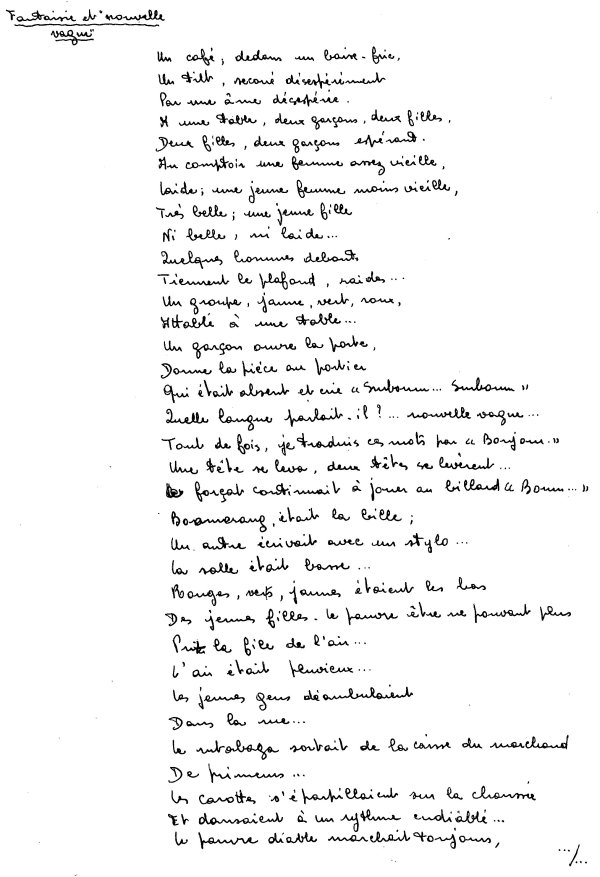 Fantaisie et "nouvelle
vague"
Un café; dedans un baise-fric,
Un tilt, secoué désespérément
Par une âme désespérée.
A une table, deux garçons, deux filles,
Deux filles, deux garçons espérant.
Au comptoir une femme assez vieille,
Laide; une jeune femme moins vieille,
Très belle; une jeune fille
Ni belle, ni laide...
Quelques hommes debouts
Tiennent le plafond, raides...
Un groupe, jaune, vert, roux,
Attablé à une table...
Un garçon ouvre la porte,
Donne la pièce au portier
Qui était absent et crie « Smboum... Smboum »
Quelle langue parlait-il ?... nouvelle vague...
Tout de fois, je traduis ces mots par « Bonjour. »
Une tête se leva, deux têtes se levèrent...
Le forçat continuait à jouer au billard « Boum... »
Boomerang, était la bille;
Un autre écrivait avec un stylo...
La salle était basse...
Rouges, verts, jaunes étaient les bas
Des jeunes filles. Le pauvre être ne pouvant plus
Prit la file de l'air...
L'air était pluvieux...
Les jeunes gens déambulaient
Dans la rue...
Le rutabaga sortait de la caisse du marchand
De primeurs...
Les carottes s'éparpillaient sur la chaussée
Et dansaient à un rythme endiablé...
Le pauvre diable marchait toujours,
.../...